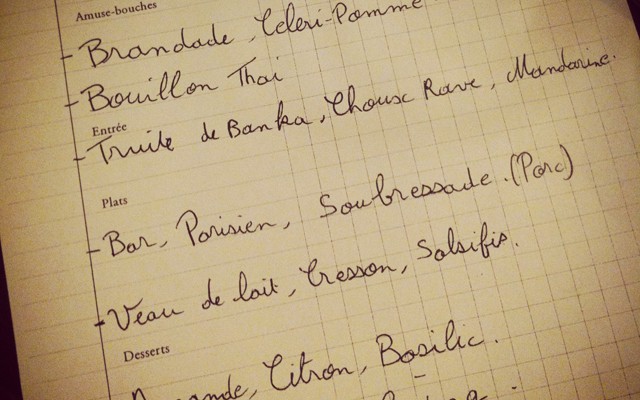 Amuse-bouches
- Brandade, Céleri-Pomme
- Bouillon Thai
Entrée
- Truite de Banka, Choux Rave, Mandarine.
Plats
- Bar, Parisien, Soubressade. (Porc)
- Veau de lait, Cresson, Salsifis.
Desserts
Citron, Basilic.